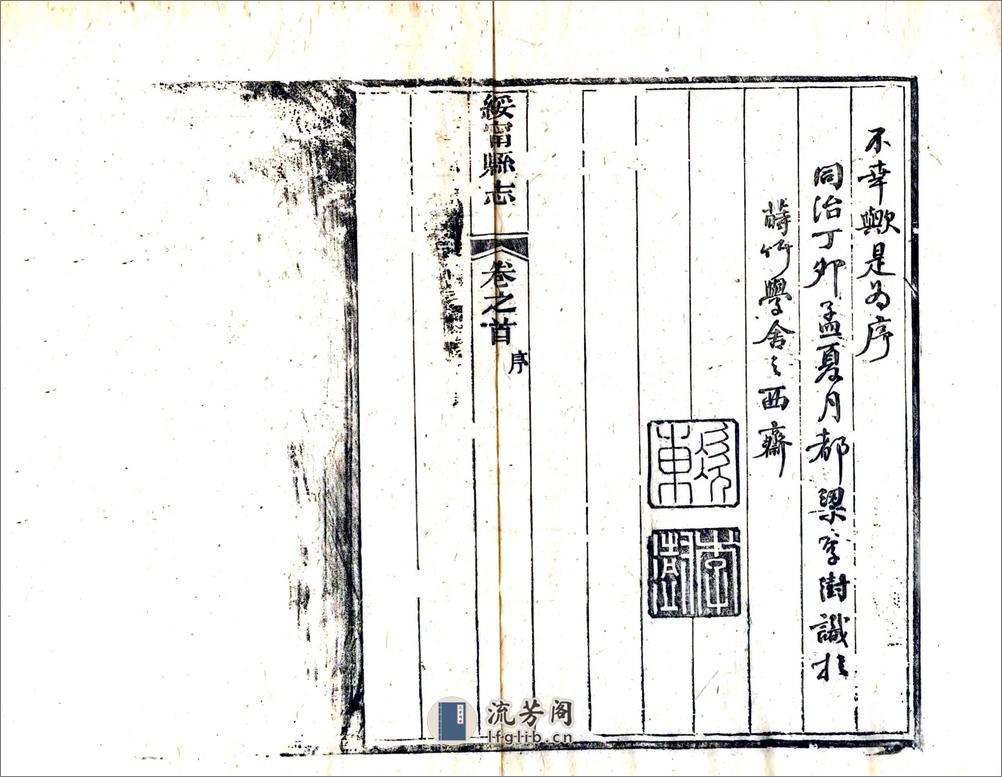 不幸歟是为序
同治丁卯孟夏月都梁李澍識扵
蒔竹學舍之西齋
綏甯縣志
卷之首
序
流芳阁
lfglib.cn